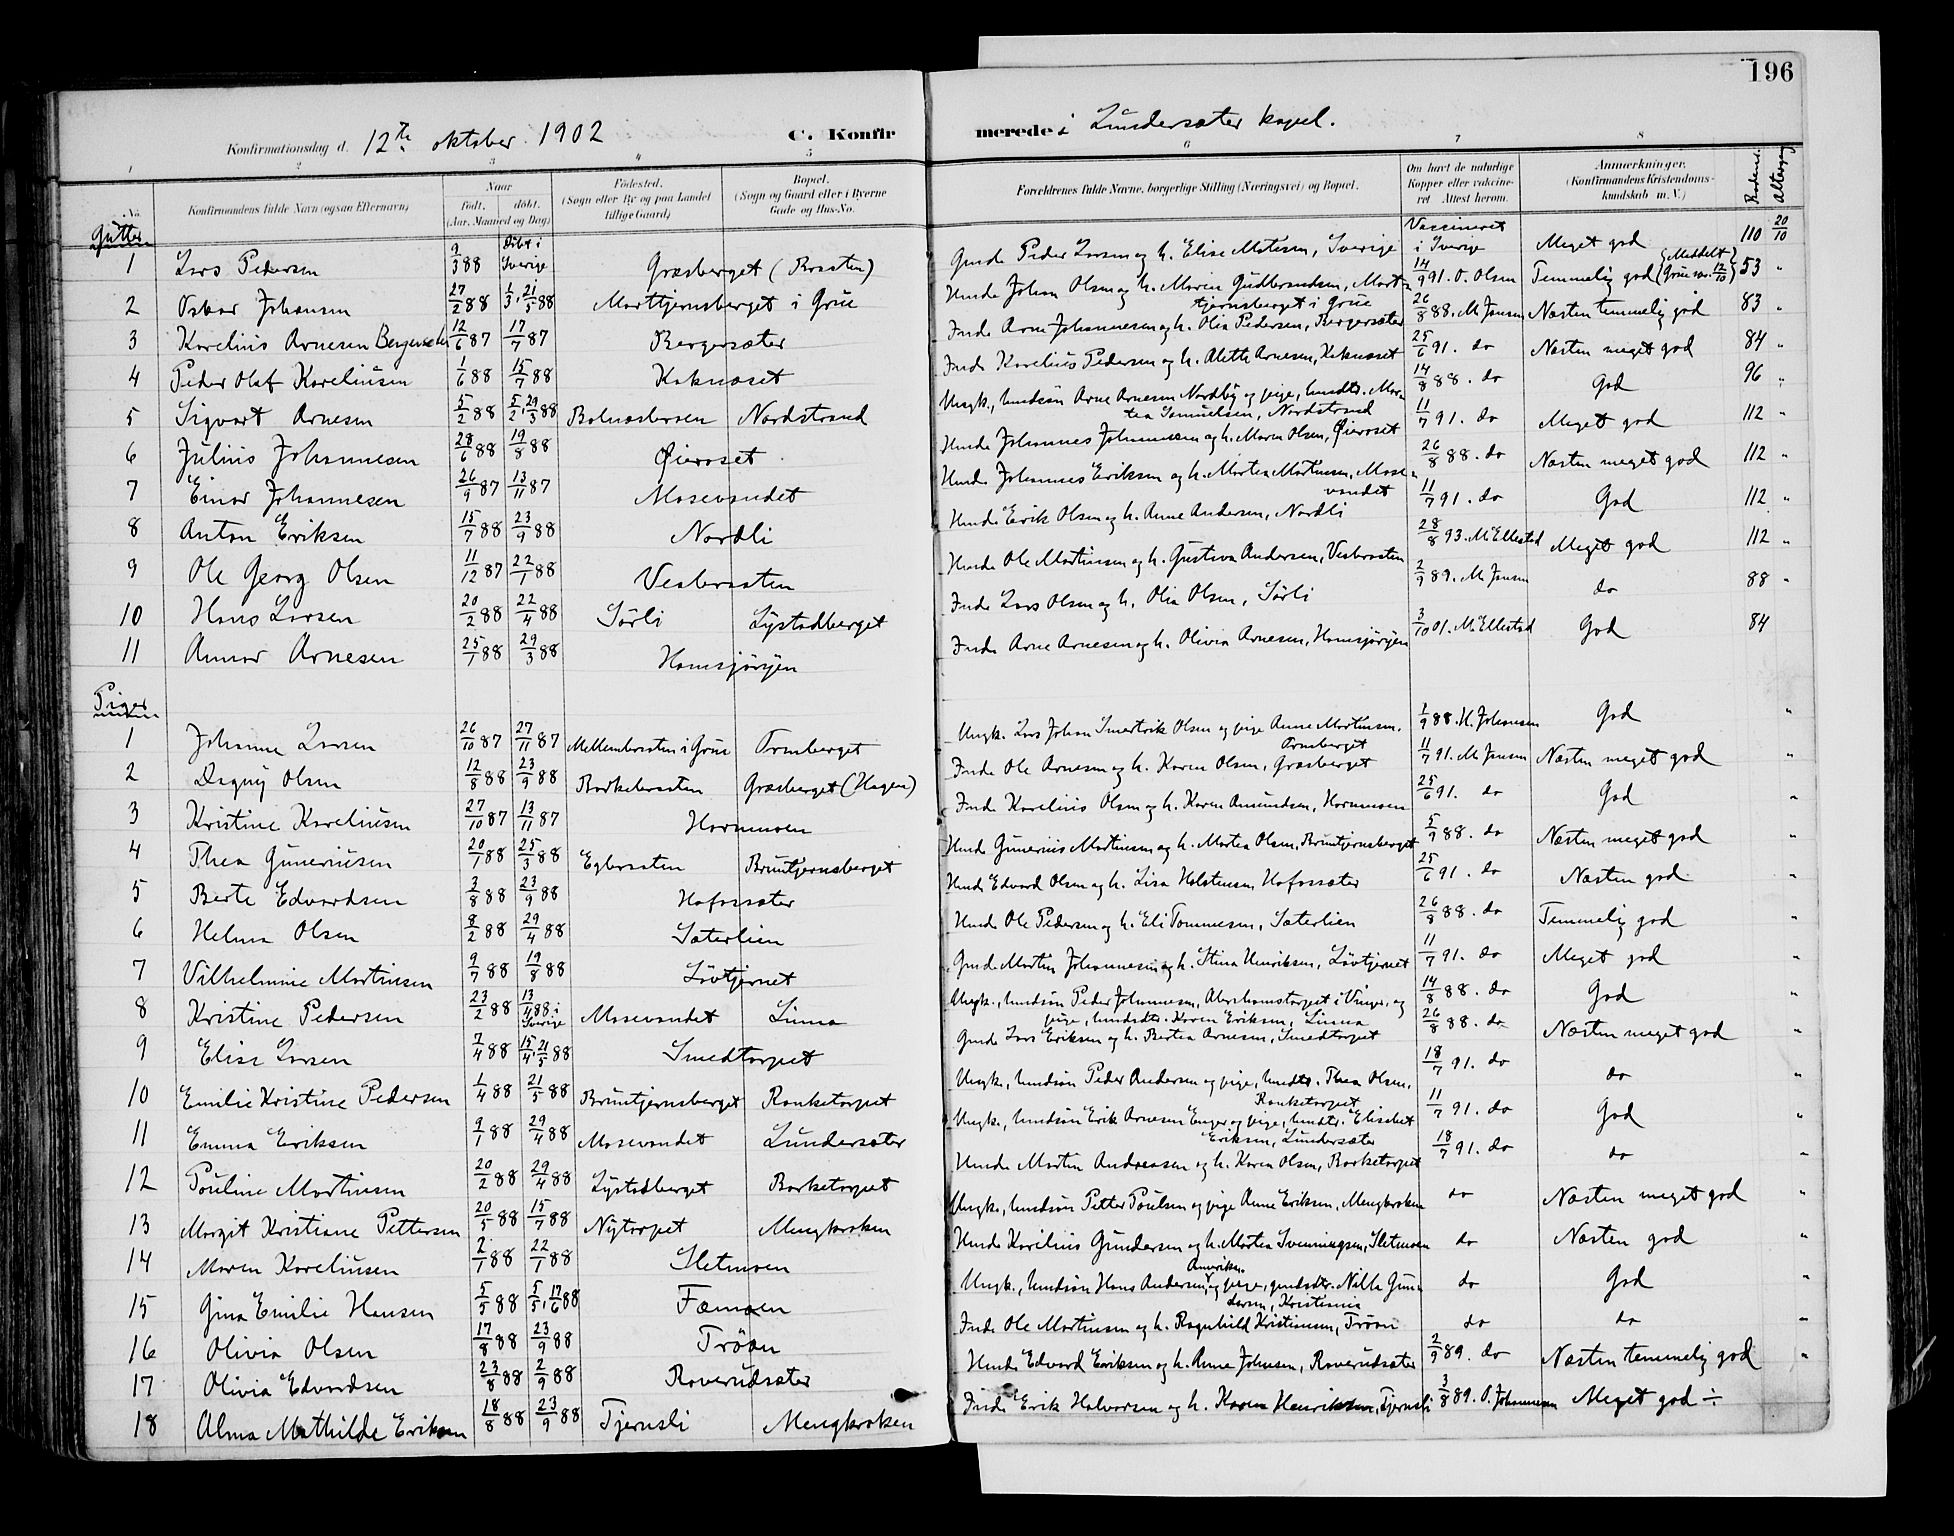 196
Konfirmationsdag d. 12te oktober 1902 C. Konfirmerede i Lundersæter kapel.
1 2 3 4 5 6 7 8
No. Konfirmandens fulde Navn (ogsaa Efternavn) Naar født. døbt. (Aar, Maaned og Dag) Fødested. (Sogn eller By og paa Landet tillige Gaard) Bopæl. (Sogn og Gaard eller i Byerne Gade og Hus-No. Forældrenes fulde Navne, borgerlige Stilling (Næringsvei) og Bopæl. Om havt de naturlige Kopper eller vaccineret Attest herom. Anmærkninger. (Konfirmandens Kristendomskundskab m. V.) Altergang
Gutter 20/10
1 Lars Pedersen 9/3 88 Døbt i Sverige Græsberget (Braaten) Gmd. Peder Larsen og h. Elise Matisen, Sverige Vaccineret i Sverige Meget god 110
2 Oskar Johansen 27/2 88 1/3, 21/5 88 Morttjernsberget i Grue Hmde Johan Olsen og h. Maren Gudbrandsen, Morttjernsberget i Grue 14/9 91. O. Olsen Temmelig god (Meddelt Grue 12/10) 53 "
3 Karelius Arnesen Bergersæter 12/6 87 17/7 87 Bergersæter Inds. Arne Johannesen og h. Olia Pedersen, Bergersæter 26/8 88. M. Jensen Næsten temmelig god 83 "
4 Peder Olaf Kareliusen 1/6 88 15/7 88 Koknæset Inds. Karelius Pedersen og h. Alette Arnesen, Koknæset 25/6 91. do Næsten meget god 84 "
5 Sigvart Arnesen 5/2 88 5/2, 29/3 88 Bolnæsbersen Nordstrand Ungk., hmdsøn Arne Arnesen Nordby og pige, hmdsdtr. Martea Samuelsen, Nordstrand 14/8 88. do God 96 "
6 Julius Johannesen 28/6 88 19/8 88 Øieraset Hmde Johannes Johannesen og h. Maren Olsen, Øieraset 11/7 91. do Meget god 112 "
7 Einar Johannesen 26/9 87 13/11 87 Mosevandet Hmde Johannes Eriksen og h. Martea Martinsen, Mosevandet 26/8 88. do Næsten meget god 112 "
8 Anton Eriksen 15/7 88 23/9 88 Nordli Hmde Erik Olsen og h. Anne Andersen, Nordli 11/7 91. do God 112 "
9 Ole Georg Olsen 11/12 87 22/1 88 Vesbraaten Hmde Ole Martinsen og h. Gustava Andersen, Vesbraaten 28/8 93. M. Ellestad Meget god 112 "
10 Hans Larsen 20/2 88 22/4 88 Sørli Lystadberget Inds. Lars Olsen og h. Olia Olsen, Sørli 2/9 89. M. Jensen do 88 "
11 Annar Arnesen 25/1 88 29/3 88 Hamsjøryen Inds. Arne Arnesen og h. Olivia Arnesen, Hamsjøryen 3/10 01. M. Ellestad God 84
Piger
1 Johanne Larsen 26/10 87 27/11 87 Mellembraaten i Grue Ormberget Ungk. Lars Johan Olsen og pige Anne Martinsen, Ormberget 1/9 88. H. Johansen God "
2 Dagny Olsen 12/8 88 23/9 88 Borkebraaten Græsberget (Hagen) Inds. Ole Arnesen og h. Karen Olsen, Græsberget 11/7 91. M. Jensen Næsten meget god "
3 Kristine Kareliusen 27/10 87 13/11 87 Harnmoen Inds. Karelius Olsen og h. Karen Amundsen, Harnmoen 25/6 91. do God "
4 Thea Gunneriusen 20/1 88 25/3 88 Egbraaten Bruntjernsberget Hmde Gunerius Martinsen og h. Martea Olsen, Bruntjernsberget 5/9 88. do Næsten meget god "
5 Berte Edvardsen 2/8 88 23/9 88 Hofossæter Hmd. Edvard Olsen og h. Lisa Halstensen, Hofossæter 25/6 91. do Næsten god "
6 Helma Olsen 8/2 88 29/4 88 Sæterlien Hmde Ole Pedersen og h. Eli Tommesen, Sæterlien 26/8 88. do Temmelig god "
7 Vilhelmine Martinsen 9/7 88 19/8 88 Løvtjernet Gmd. Martin Johannesen og h. Stina Henriksen, Løvtjernet 11/7 91. do Meget god "
8 Kristine Pedersen 23/2 88 13/4 88 i Sverige Mosevandet Linna Ungk., hmdsøn Peder Johannesen, Abrahamstorpet i Vinger, og pige, hmdsdtr. Karen Eriksen, Linna 14/8 88. do God "
9 Elise Larsen 7/4 88 15/4, 21/5 88 Smedtorpet Gmde Lars Eriksen og h. Bertea Arnesen, Smedtorpet 26/8 88. do Næsten meget god "
10 Emilie Kristine Pedersen 1/4 88 21/5 88 Bruntjernsberget Ranketorpet Ungk., hmdsøn Peder Andersen og pige, hmdsdtr. Thea Olsen, Ranketorpet 18/7 91. do do "
11 Emma Eriksen 9/1 88 29/4 88 Mosevandet Lundersæter Ungk., hmdsøn Erik Arnesen Enger og pige, hmdsdtr. Elisabet Eriksen, Lundersæter 11/7 91. do God "
12 Pouline Martinsen 20/2 88 29/4 88 Lystadberget Borketorpet Hmde Martin Andreasen og h. Karen Olsen, Borketorpet 18/7 91. do do "
13 Margit Kristiane Pettersen 20/5 88 15/7 88 Nytorpet Mengkroken Ungk., hmdsøn Petter Poulsen og pige Anne Eriksen, Mengkroken do Næsten meget god "
14 Maren Kareliusen 2/1 88 22/1 88 Sletmoen Hmde Karelius Gundersen og h. Martea Svenningsen, Sletmoen do Næsten god "
15 Gina Emilie Hansen 5/5 88 5/5, 17/6 88 Fæmoen Ungk., hmdsøn Hans Andersen, Amerika og pige, gmdsdtr. Nille Gundersen, Kristiania do God "
16 Olivia Olsen 17/8 88 23/9 88 Trøen Inds. Ole Martinsen og h. Ragnhild Kristiansen, Trøen do do "
17 Olivia Edvardsen 23/8 88 2/9 88 Raverudsæter Hmde Edvard Eriksen og h. Anne Johnsen, Raverudsæter 2/9 89. do Næsten temmelig god "
18 Alma Mathilde Eriksen 18/8 88 23/9 88 Tjernsli Mengkroken Inds. Erik Halvorsen og h. Karen Henriksen, Tjernsli 3/8 89. O. Johannesen Meget god ÷